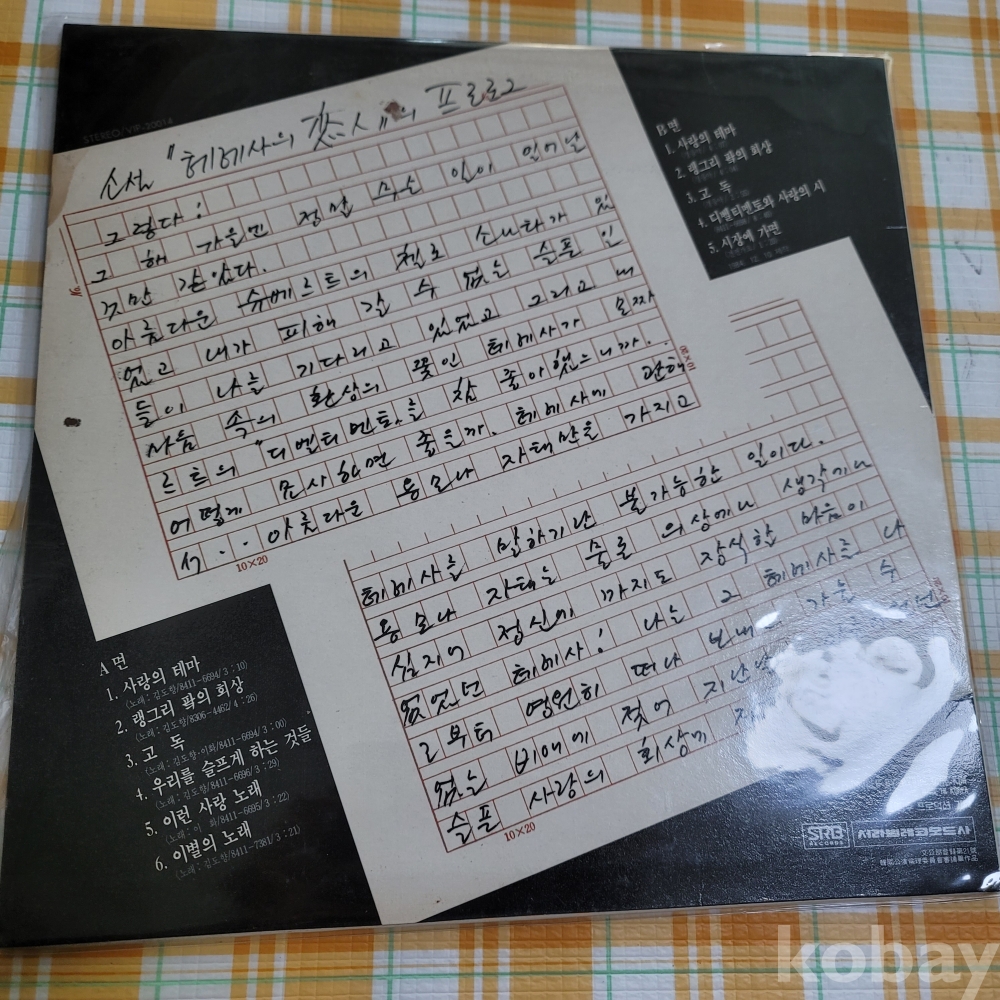 STEREO/VIP-20014
소설 "헤레사의 恋人"의 프롤로그
그렇다!
그 해 가을엔 정말 무슨 일이 일어날
것만 같았다.
아름다운 슈베르트의 첼로 소나타가 있
었고 내가 피해 갈 수 없는 슬픈 인
들이 나를 기다리고 있었고 그리고 내
사둠 속의 환상의 꽃인 헤레사가 모짜
르트의 "디벨티멘토"를 참 좋아했으니까.
어떻게 묘사하면 좋을까. 헤레사에 관해
서.. 아름다운 용모나 자태만을 가지고
10×20
헤레사를 말하기란 불가능한 일이다.
용모나 자태는 물론 의상에나 생각에나
심지어 정신에 까지도 장식한 마음이
없었던 헤레사! 나는 그 헤레사를 나
로부터 영원히 떠나 보내
없는 비애에 젖어 지난날
슬픈 사랑의 회상에
10×20
A면
1. 사랑의 테마
(노래 : 김도향/8411-6694/3 : 10)
2. 랭그리 팍의 회상
(노래 : 김도향/8306-4462/4 : 26)
3. 고 독
(노래 : 김도향·이화/8411-6694/3 : 00)
4. 우리를 슬프게 하는 것들
(노래 : 김도향/8411-6696/3 : 29)
5. 이런 사랑 노래
(노래 : 이 화/8411-6695/3 : 22)
6. 이별의 노래
(노래 : 김도향/8411-7381/3 : 21)
B면
1. 사랑의 테마
2. 랭그리 팍의 회상
3. 고 독
4. 디벨티멘토와 사랑의 시
5. 시장에 가면
SRB
RECORDS
서라벌레코오드사
kobay